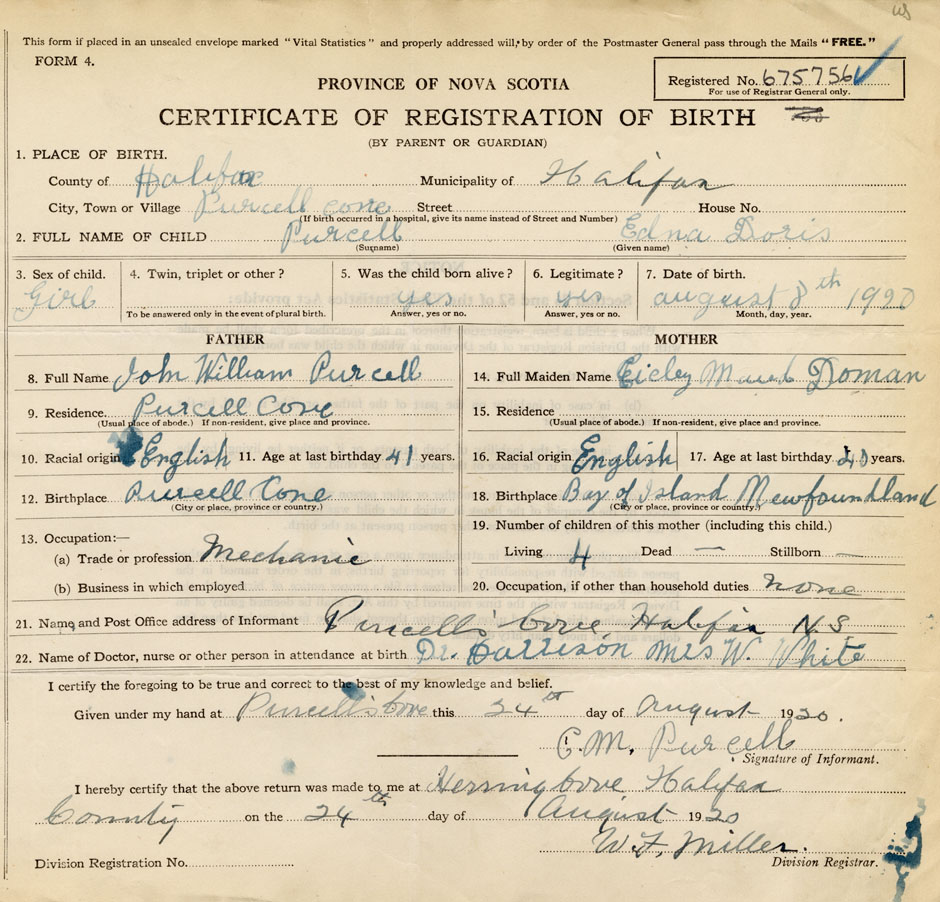 This form if placed in an unsealed envelope marked "Vital Statistics" and properly addressed will, by order of the Postmaster General pass through the Mails "FREE."
FORM 4.
Registered No. 675756
For use of Registrar General only.
PROVINCE OF NOVA SCOTIA
CERTIFICATE OF REGISTRATION OF BIRTH
(BY PARENT OR GUARDIAN)
1. PLACE OF BIRTH.
County of Halifax Municipality of Halifax
City, Town or Village Purcell cone Street House No.
(If birth occurred in a hospital, give its name instead of Street and Number)
2. FULL NAME OF CHILD Purcell Edna Doris
(Surname) (Given name)
3. Sex of child. 4. Twin, triplet or other? 5. Was the child born alive? 6. Legitimate? 7. Date of birth.
Girl yes yes august 8th 1920
To be answered only in the event of plural birth. Answer, yes or no. Answer, yes or no. Month, day, year.
FATHER MOTHER
8. Full Name John William Purcell 14. Full Maiden Name Cicley Maud Doman
9. Residence. Purcell Cove 15. Residence
(Usual place of abode.) If non-resident, give place and province. (Usual place of abode.) If non-resident, give place and province.
10. Racial origin English 11. Age at last birthday 41 years. 16. Racial origin English 17. Age at last birthday years.
12. Birthplace Purcell Cone 18. Birthplace Bay of Island Newfoundland
(City or place, province or country.) (City or place, province or country.)
13. Occupation:— 19. Number of children of this mother (including this child.)
(a) Trade or profession Mechanic Living 4 Dead — Stillborn —
(b) Business in which employed 20. Occupation, if other than household duties none
21. Name and Post Office address of Informant Purcells Cove, Halifax N.S
22. Name of Doctor, nurse or other person in attendance at birth Dr. Mrs W. White
I certify the foregoing to be true and correct to the best of my knowledge and belief.
Given under my hand at Purcell's cove this 24th day of August 1920.
C.M. Purcell
Signature of Informant.
I hereby certify that the above return was made to me at Herring Cove Halifax
County on the 24th day of August 1920
W.F. Miller.
Division Registration No. Division Registrar.